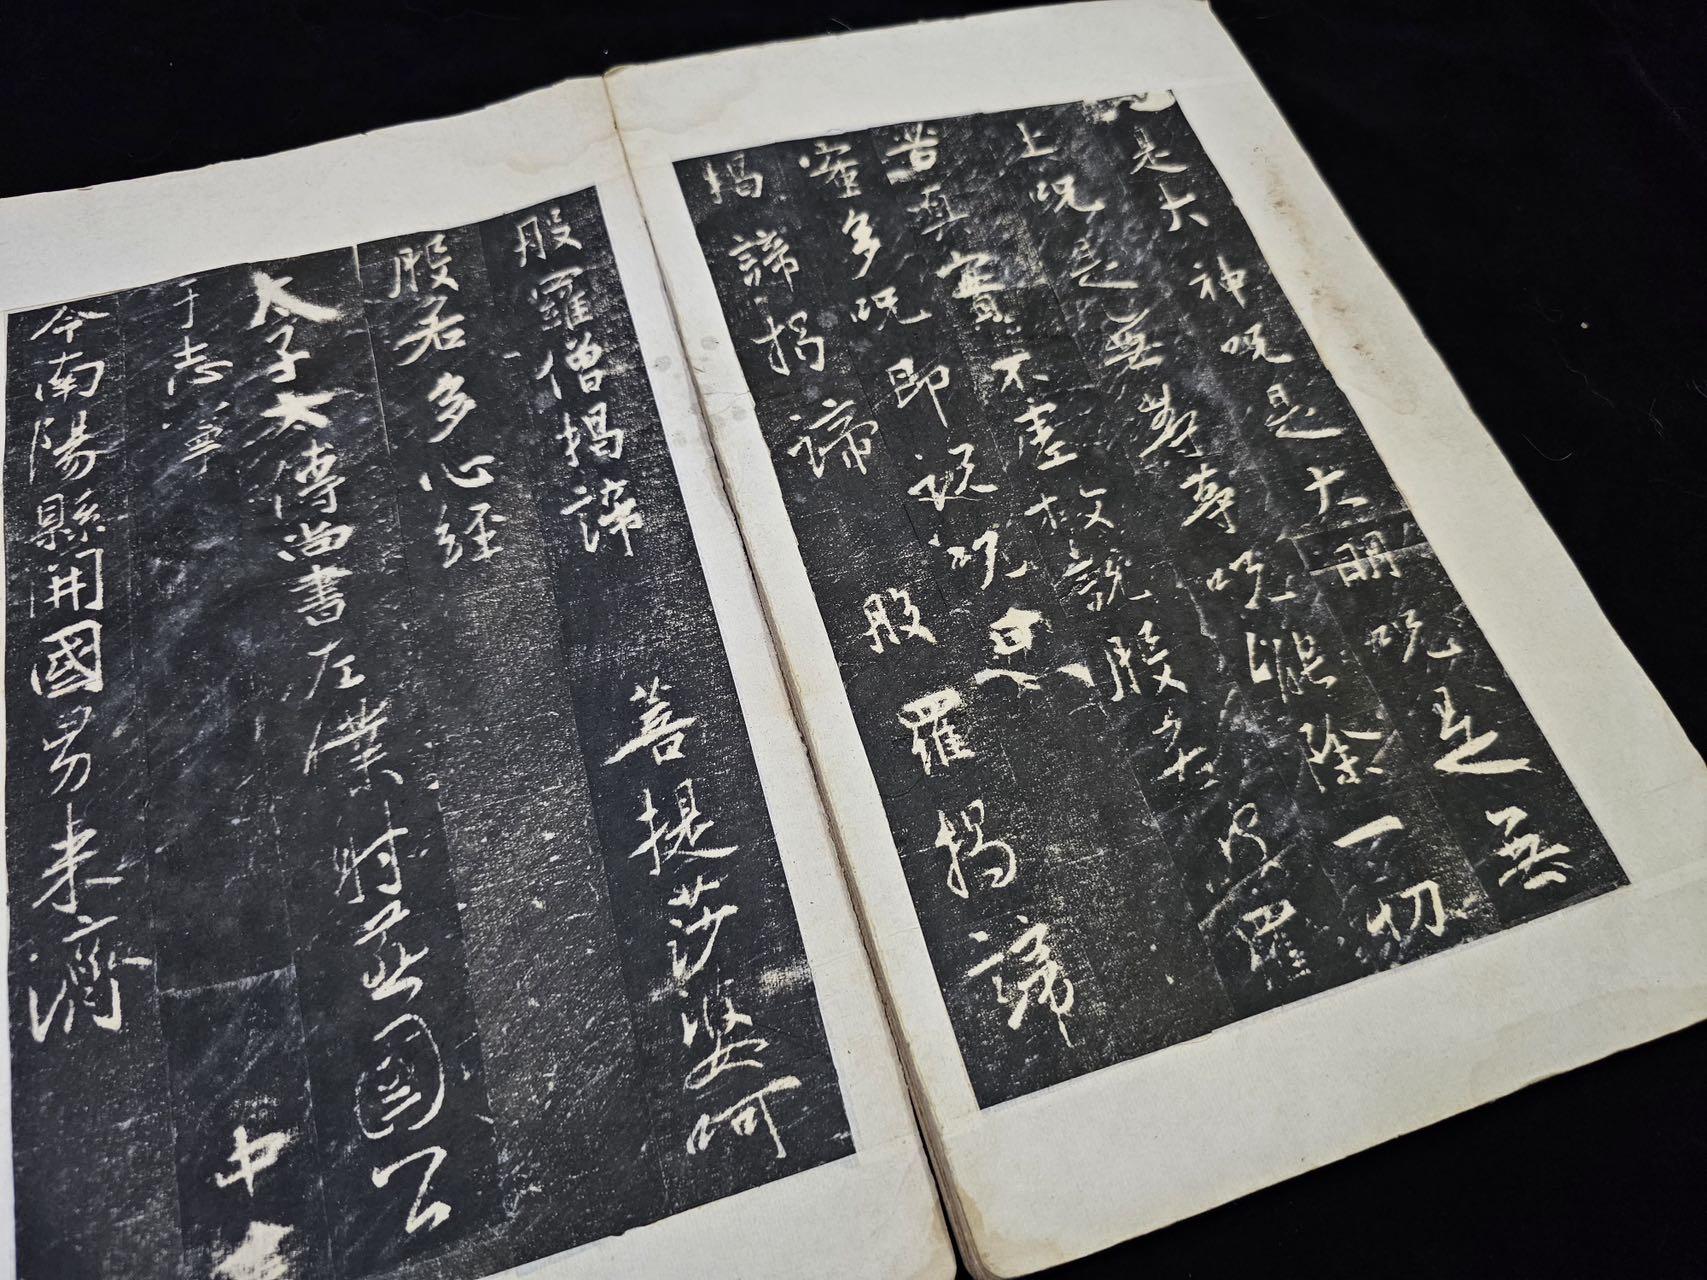 是大神呪是大明呪是無
上呪是無等等呪能除一切
苦真實不虛故說般若波羅
蜜多呪即說呪曰
揭諦揭諦 般羅揭諦
般羅僧揭諦 菩提莎婆呵
般若多心經
太子太傅尚書左僕射燕國公
于志寧 中書
令南陽縣開國男来濟